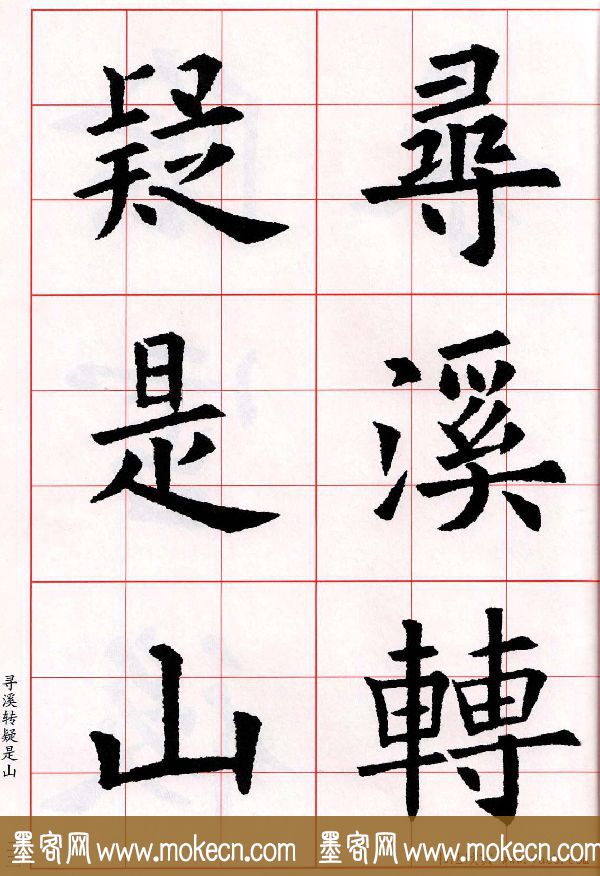 尋溪轉
疑是山
寻溪转疑是山
墨客网 www.mokecn.com 墨客网 www.mokecn.com